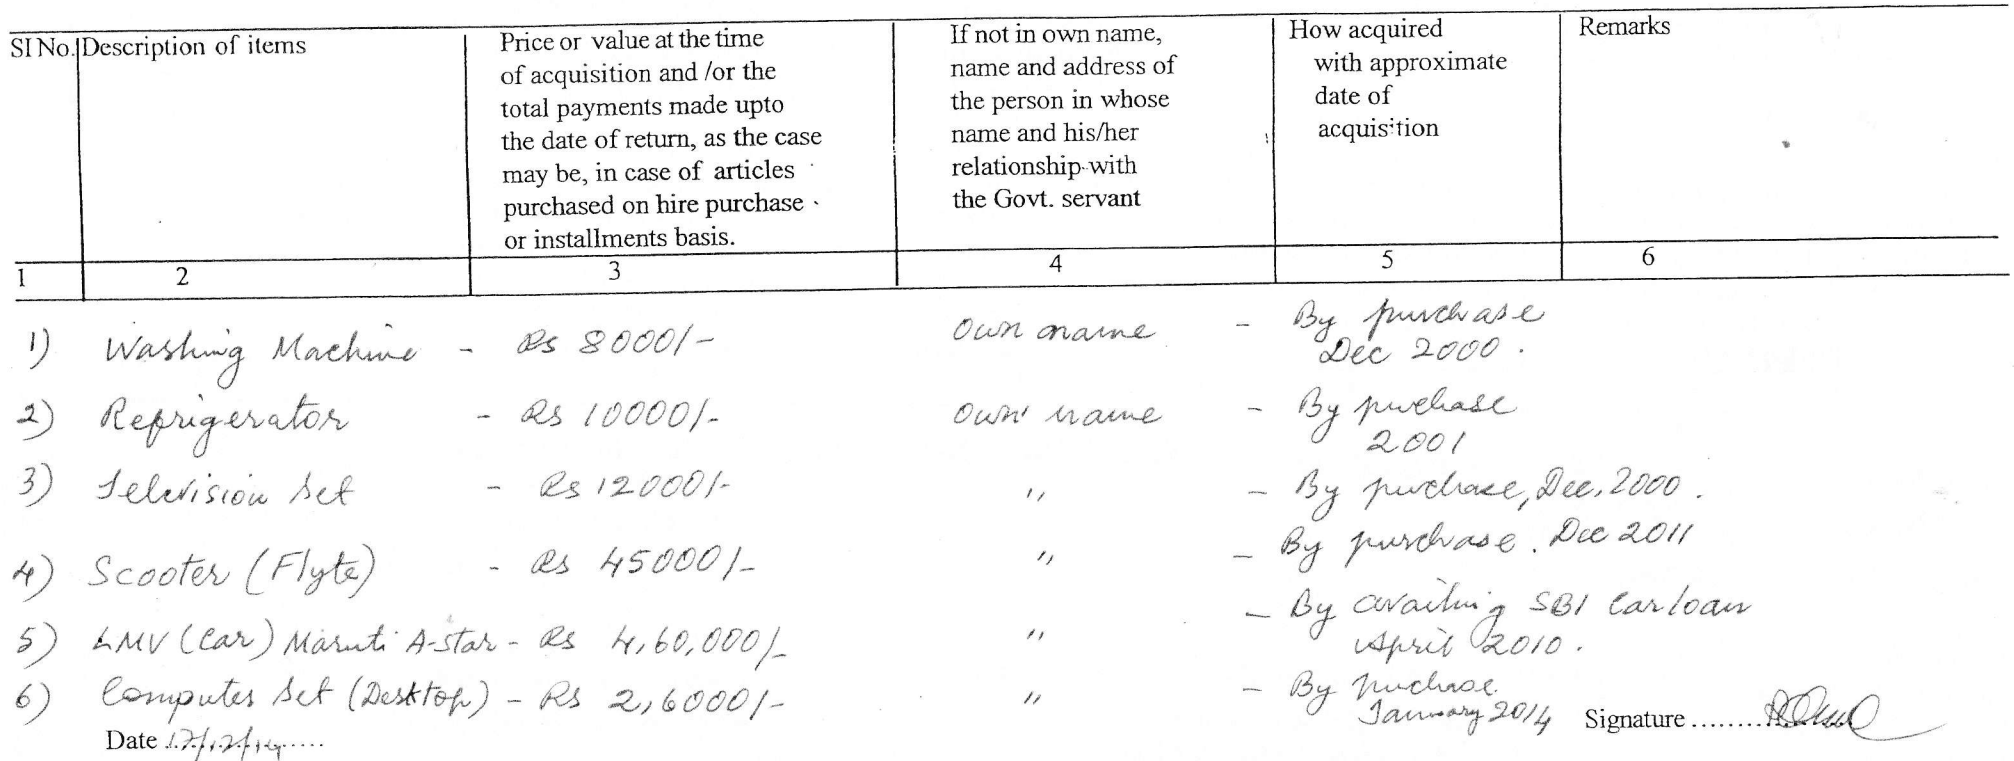 SI No. Description of items
Price or value at the time
of acquisition and /or the
total payments made upto
the date of return, as the case
may be, in case of articles
purchased on hire purchase
or installments basis.
If not in own name,
name and address of
the person in whose
name and his/her
relationship with
the Govt. servant
How acquired
with approximate
date of
acquisition
Remarks
1 2 3 4 5 6
1) Washing Machine - Rs 8000/- Own name - By purchase
Dec 2000.
2) Refrigerator - Rs 10000/- Own name - By purchase
2001
3) Television Set - Rs 12000/- " - By purchase, Dec, 2000.
4) Scooter (Flyte) - Rs 45000/- " - By purchase. Dec 2011
5) LMV (Car) Maruti A-star - Rs 4,60,000/- " - By availing SBI Car loan
April 2010.
6) Computer Set (Desktop) - Rs 2,6000/- " - By purchase
January 2014
Signature ........
Date 17/12/14 .....